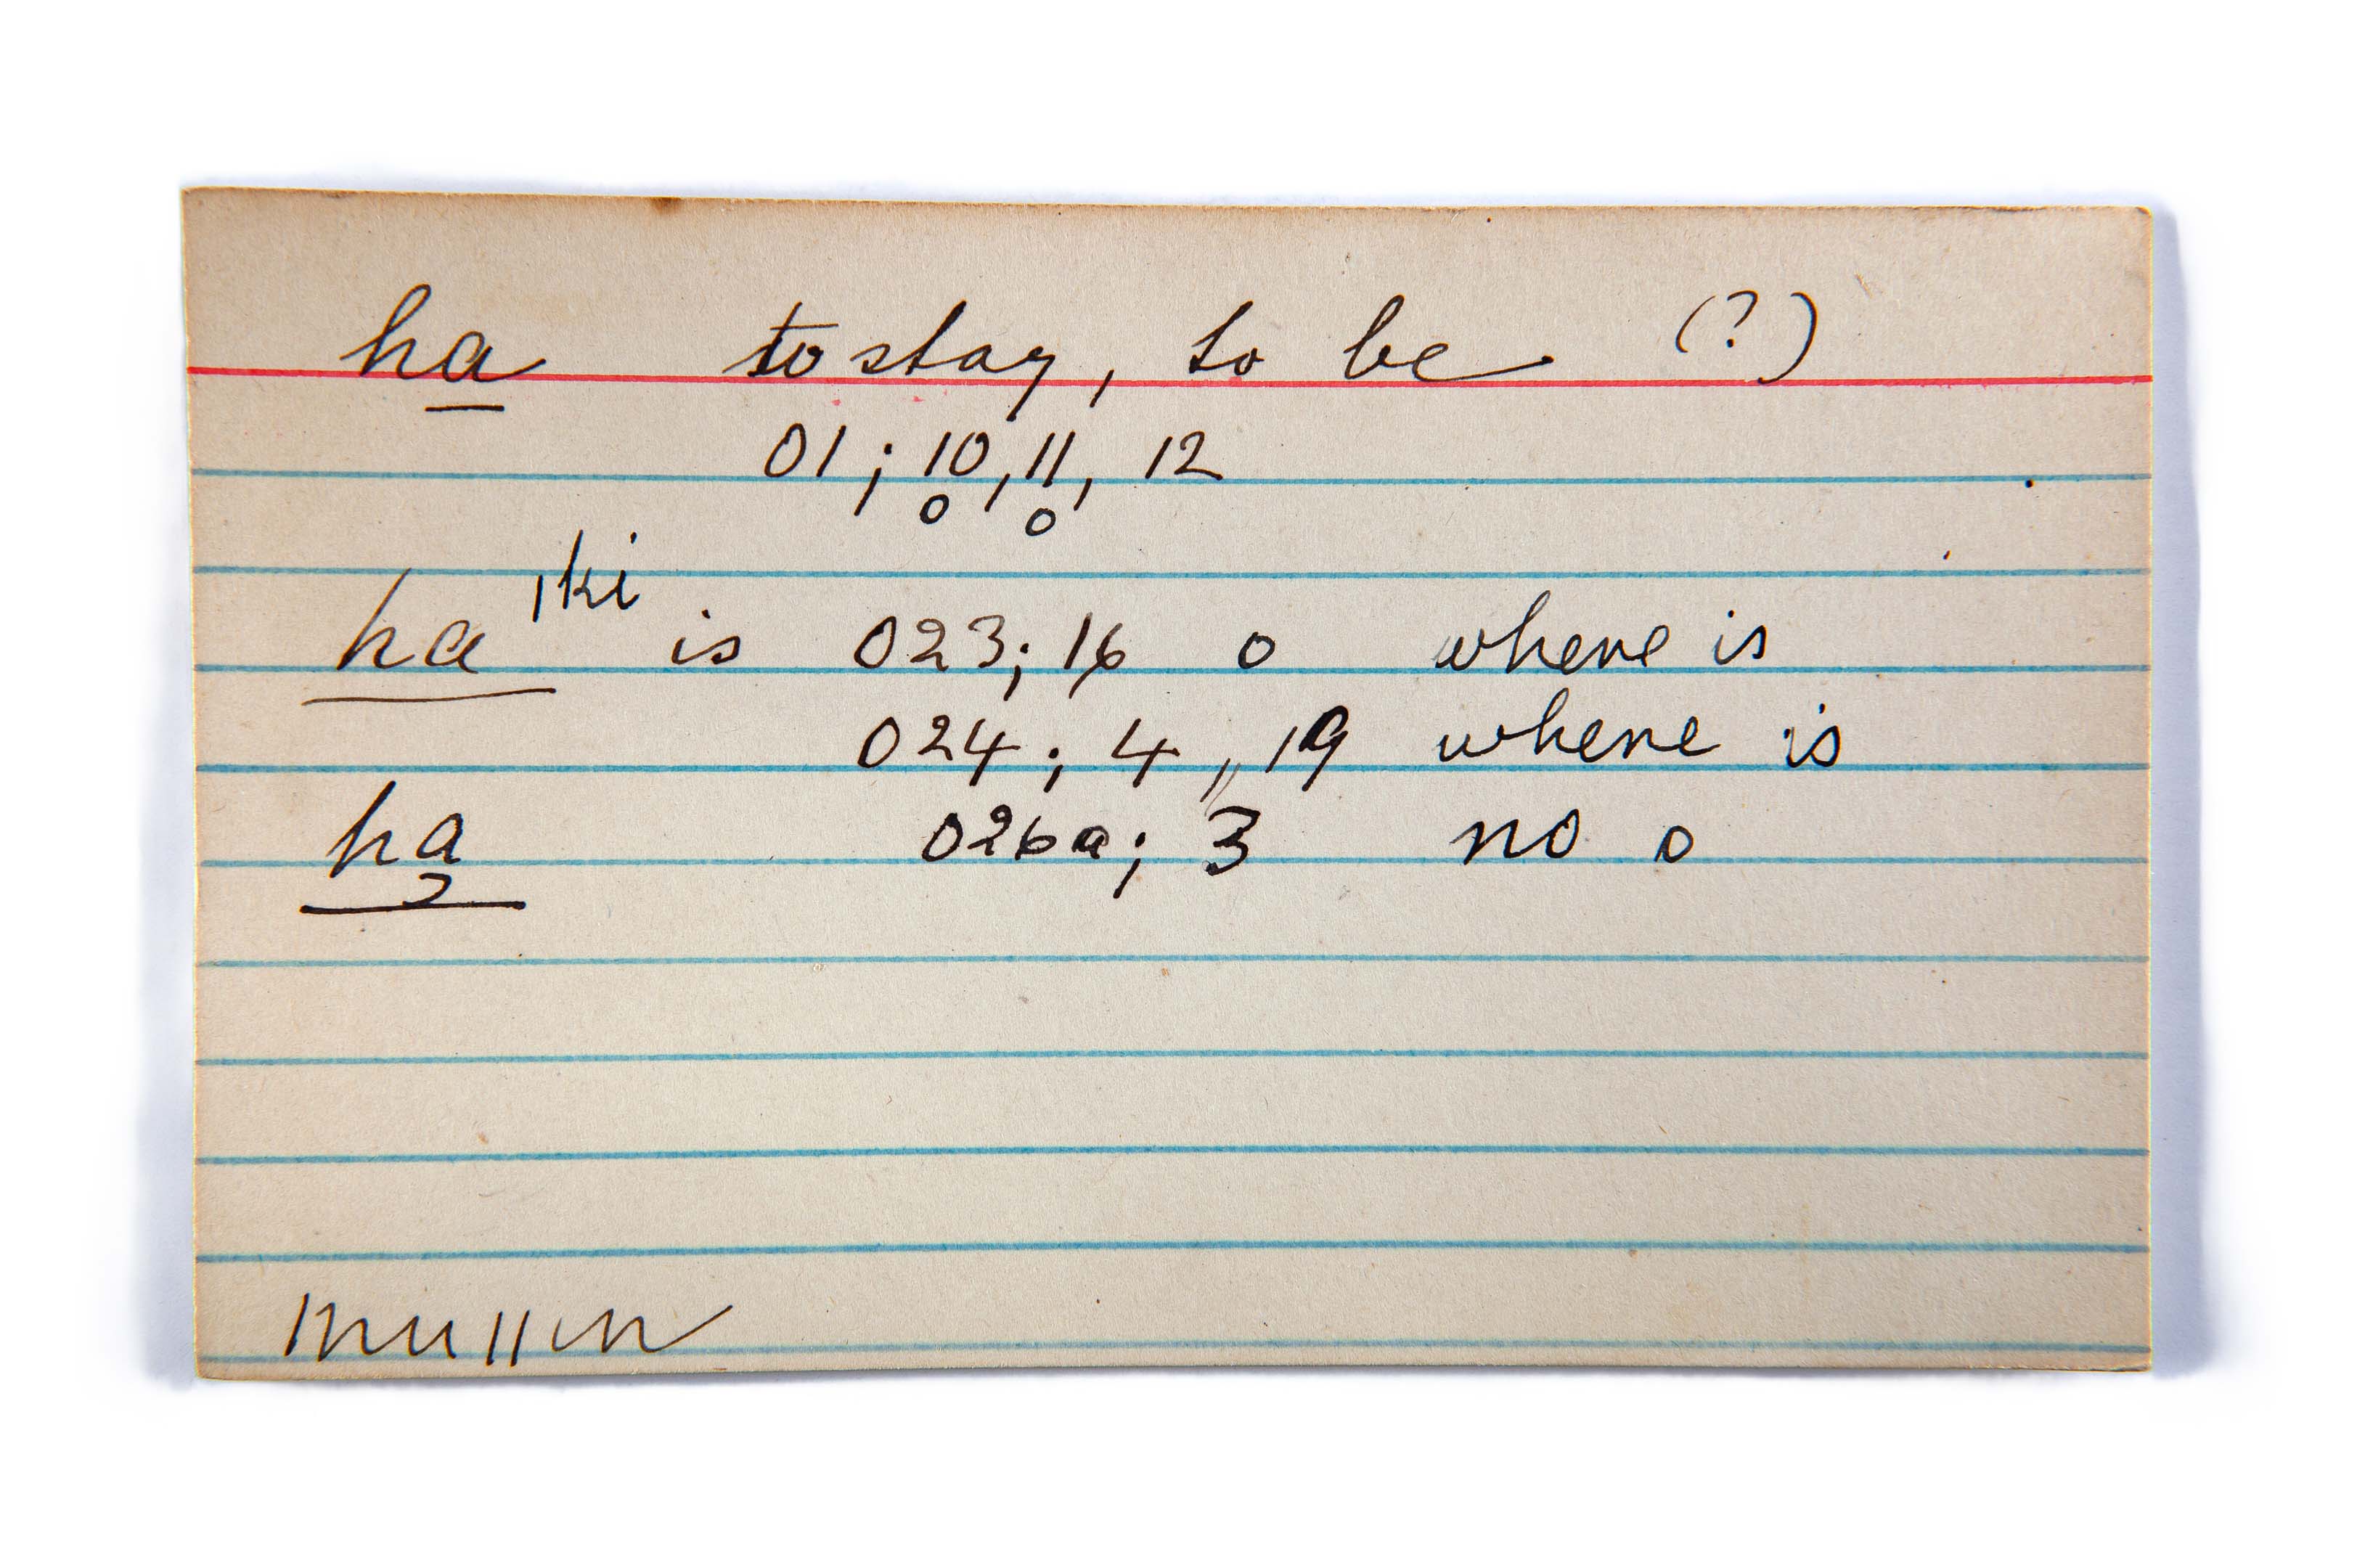 ha to stay, to be (?)
01; 10, 11, 12
o o
ha ,ki is 023; 16 o where is
024; 4,, 19 where is
ha 026a; 3 no o